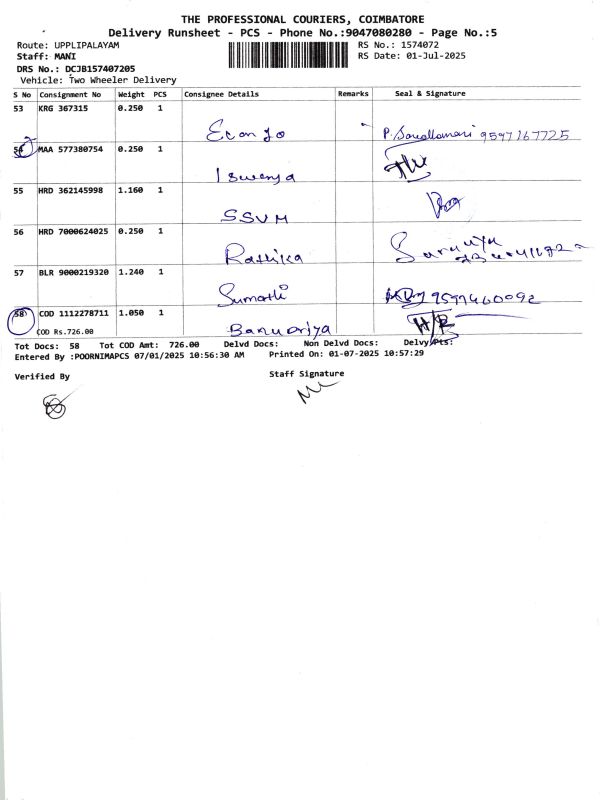 THE PROFESSIONAL COURIERS, COIMBATORE
Delivery Runsheet - PCS - Phone No.:9047080280 - Page No.:5
Route: UPPLIPALAYAM RS No.: 1574072
Staff: MANI RS Date: 01-Jul-2025
DRS No.: DCJB157407205
Vehicle: Two Wheeler Delivery
S No Consignment No Weight PCS Consignee Details Remarks Seal & Signature
53 KRG 367315 0.250 1
Econ Jo 9597167725
54 MAA 577380754 0.250 1
Iswenya
55 HRD 362145998 1.160 1
SSVM
56 HRD 7000624025 0.250 1
Rathika Saranya
57 BLR 9000219320 1.240 1
Sumathi
58 COD 1112278711 1.050 1
COD Rs.726.00 Banu H/R
Tot Docs: 58 Tot COD Amt: 726.00 Delvd Docs: Non Delvd Docs: Delvy Pts:
Entered By :POORNIMAPCS 07/01/2025 10:56:30 AM Printed On: 01-07-2025 10:57:29
Verified By Staff Signature